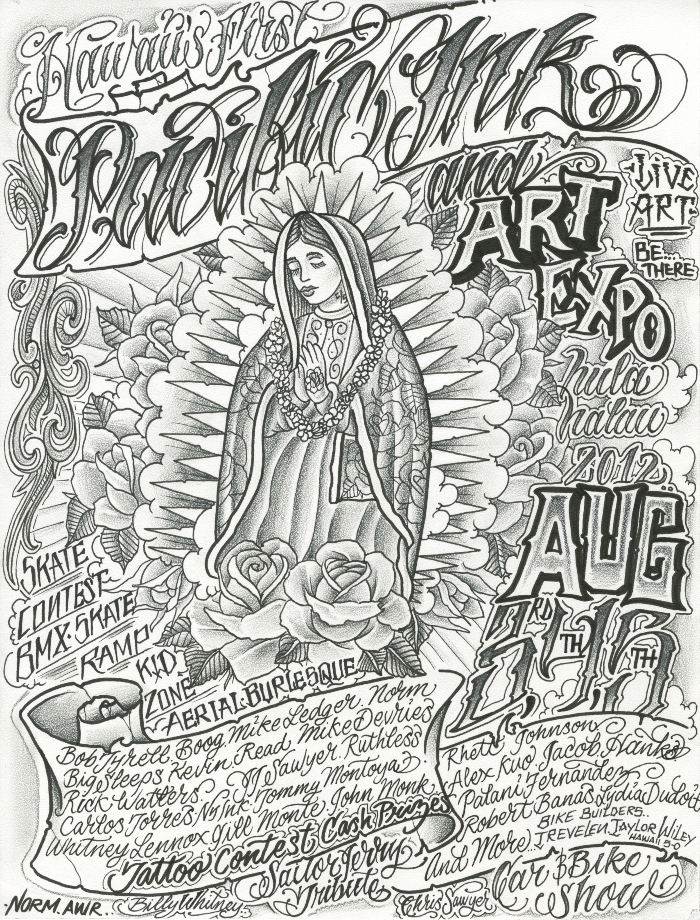 Hawaii's First
Pacific Ink
and
ART
EXPO
LIVE
ART
BE...
THERE
hula
halau
2012
AUG
3RD 4TH 5TH
SKATE
CONTEST
BMX SKATE
RAMP
KID
ZONE
AERIAL BURLESQUE
Bob Tyrell Boog Mike Ledger Norm
Big Sleeps Kevin Read Mike Devries
Rick Walters JJ Sawyer Ruthless
Carlos Torres Nu Ink Tommy Montoya
Whitney Lennox Gill Monte John Monk
Tattoo Contest Cash Prizes
Sailor Jerry
Tribute
Rhett Johnson
Alex Kuo Jacob Hanks
Palani Fernandez
Robert Banas Lydia Dudoit
And More!
BIKE BUILDERS..
J. TREVELEN, TAYLOR WILEY
HAWAII 5-O
Car & Bike
Show
NORM. AWR..
Billy Whitney
Chris Sawyer